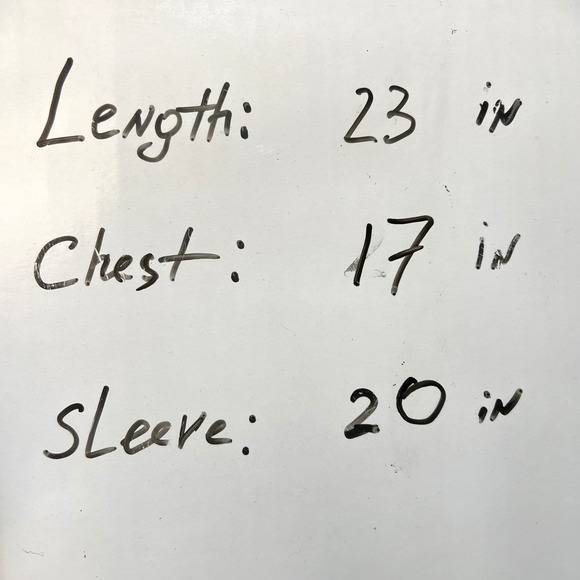 Length: 23 in
Chest: 17 in
Sleeve: 20 in